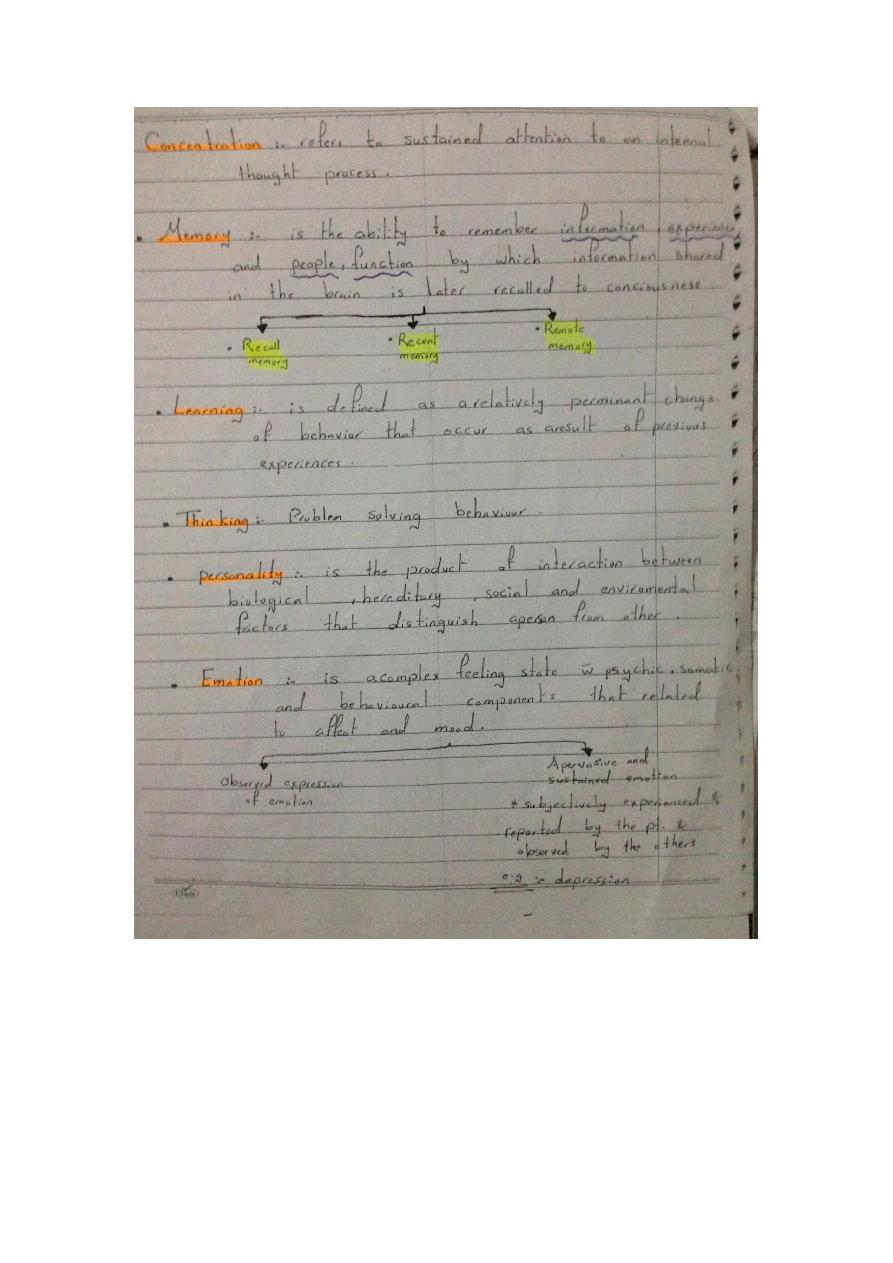 Concentration :- refers to sustained attention to an internal
thought process.
• Memory :- is the ability to remember information, experiences,
and people, function by which information shared
in the brain is later recalled to conciousness
• Recall
memory
• Recent
memory
• Remote
memory
• Learning :- is defined as arelatively perminent change
of behavior that occur as aresult of previous
experiences.
• Thinking :- Problem solving behaviour.
• personality :- is the product of interaction between
biological, hereditary, social and enviromental
factors that distinguish aperson from other.
• Emotion :- is acomplex feeling state w̄ psychic, somatic
and behavioural components that related
to affect and mood.
Observed expression
of emotion
Apervasive and
sustained emotion
* subjectively experienced &
reported by the pt. &
observed by the others
e.g :- depression